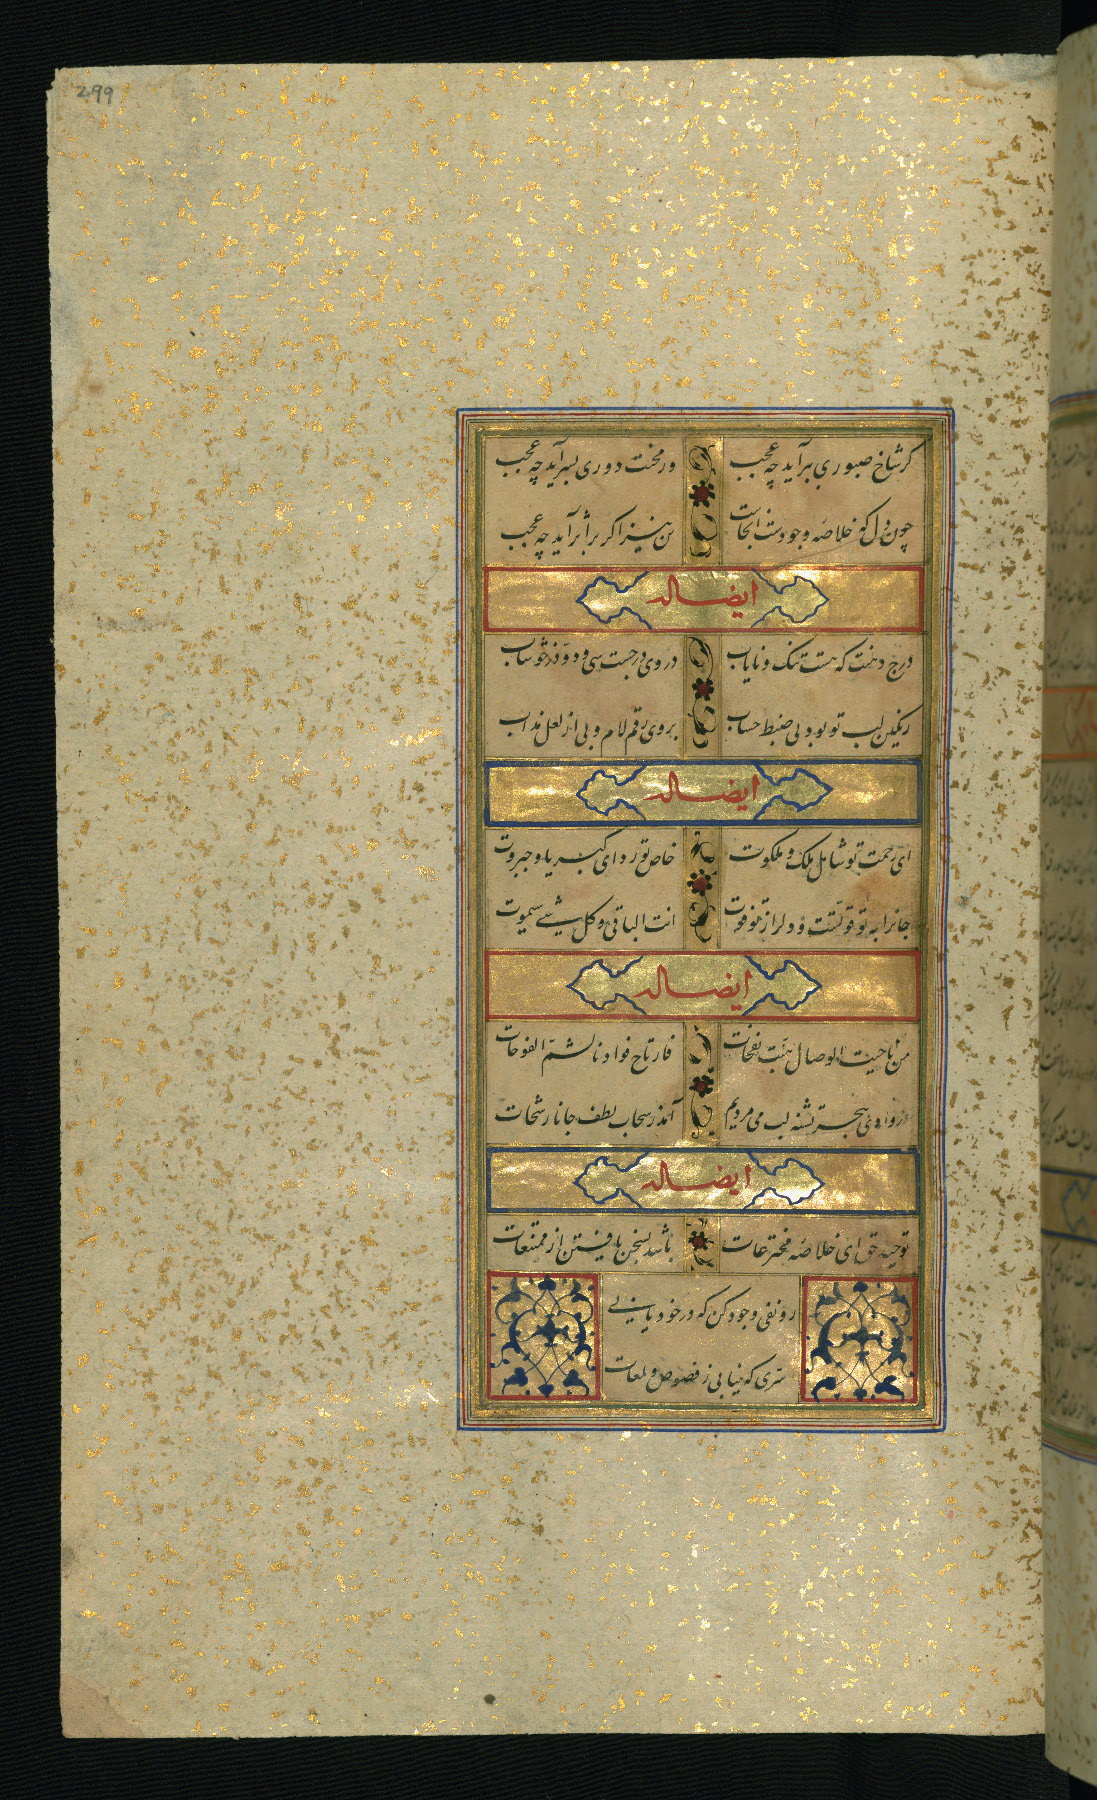 299
کر شاخ صبوری ببر آید چه عجب ور محنت دوری بسر آید چه عجب
چون دل که خلاصه وجودست آنجاست تن نیز اگر بر اثر آید چه عجب
ایضا له
درج دهنت که هست تنک و نایاب در وی درجست سی و دو در خوشاب
رنکین لب تو بود بی ضبط حساب بروی رقم لام و بی از لعل مذاب
ایضا له
ای رحمت تو شامل ملک و ملکوت خاص تو ردای کبریا و جبروت
جانرا به تو قوتست و دلرا ز تو قوت انت الباقی و کل شیئ سیموت
ایضا له
من ناحیت الوصال هبت نفحات فارتاح فوادنا لشم الفوحات
در وادی هجر تشنه لب می مردیم آمد ز سحاب لطف جانا رشحات
ایضا له
توحید حق ای خلاصه مخترعات باشد بسخن یافتن از ممتنعات
رو نفی وجود کن که در خود یابی
سری که نیابی ز فصوص و لمعات